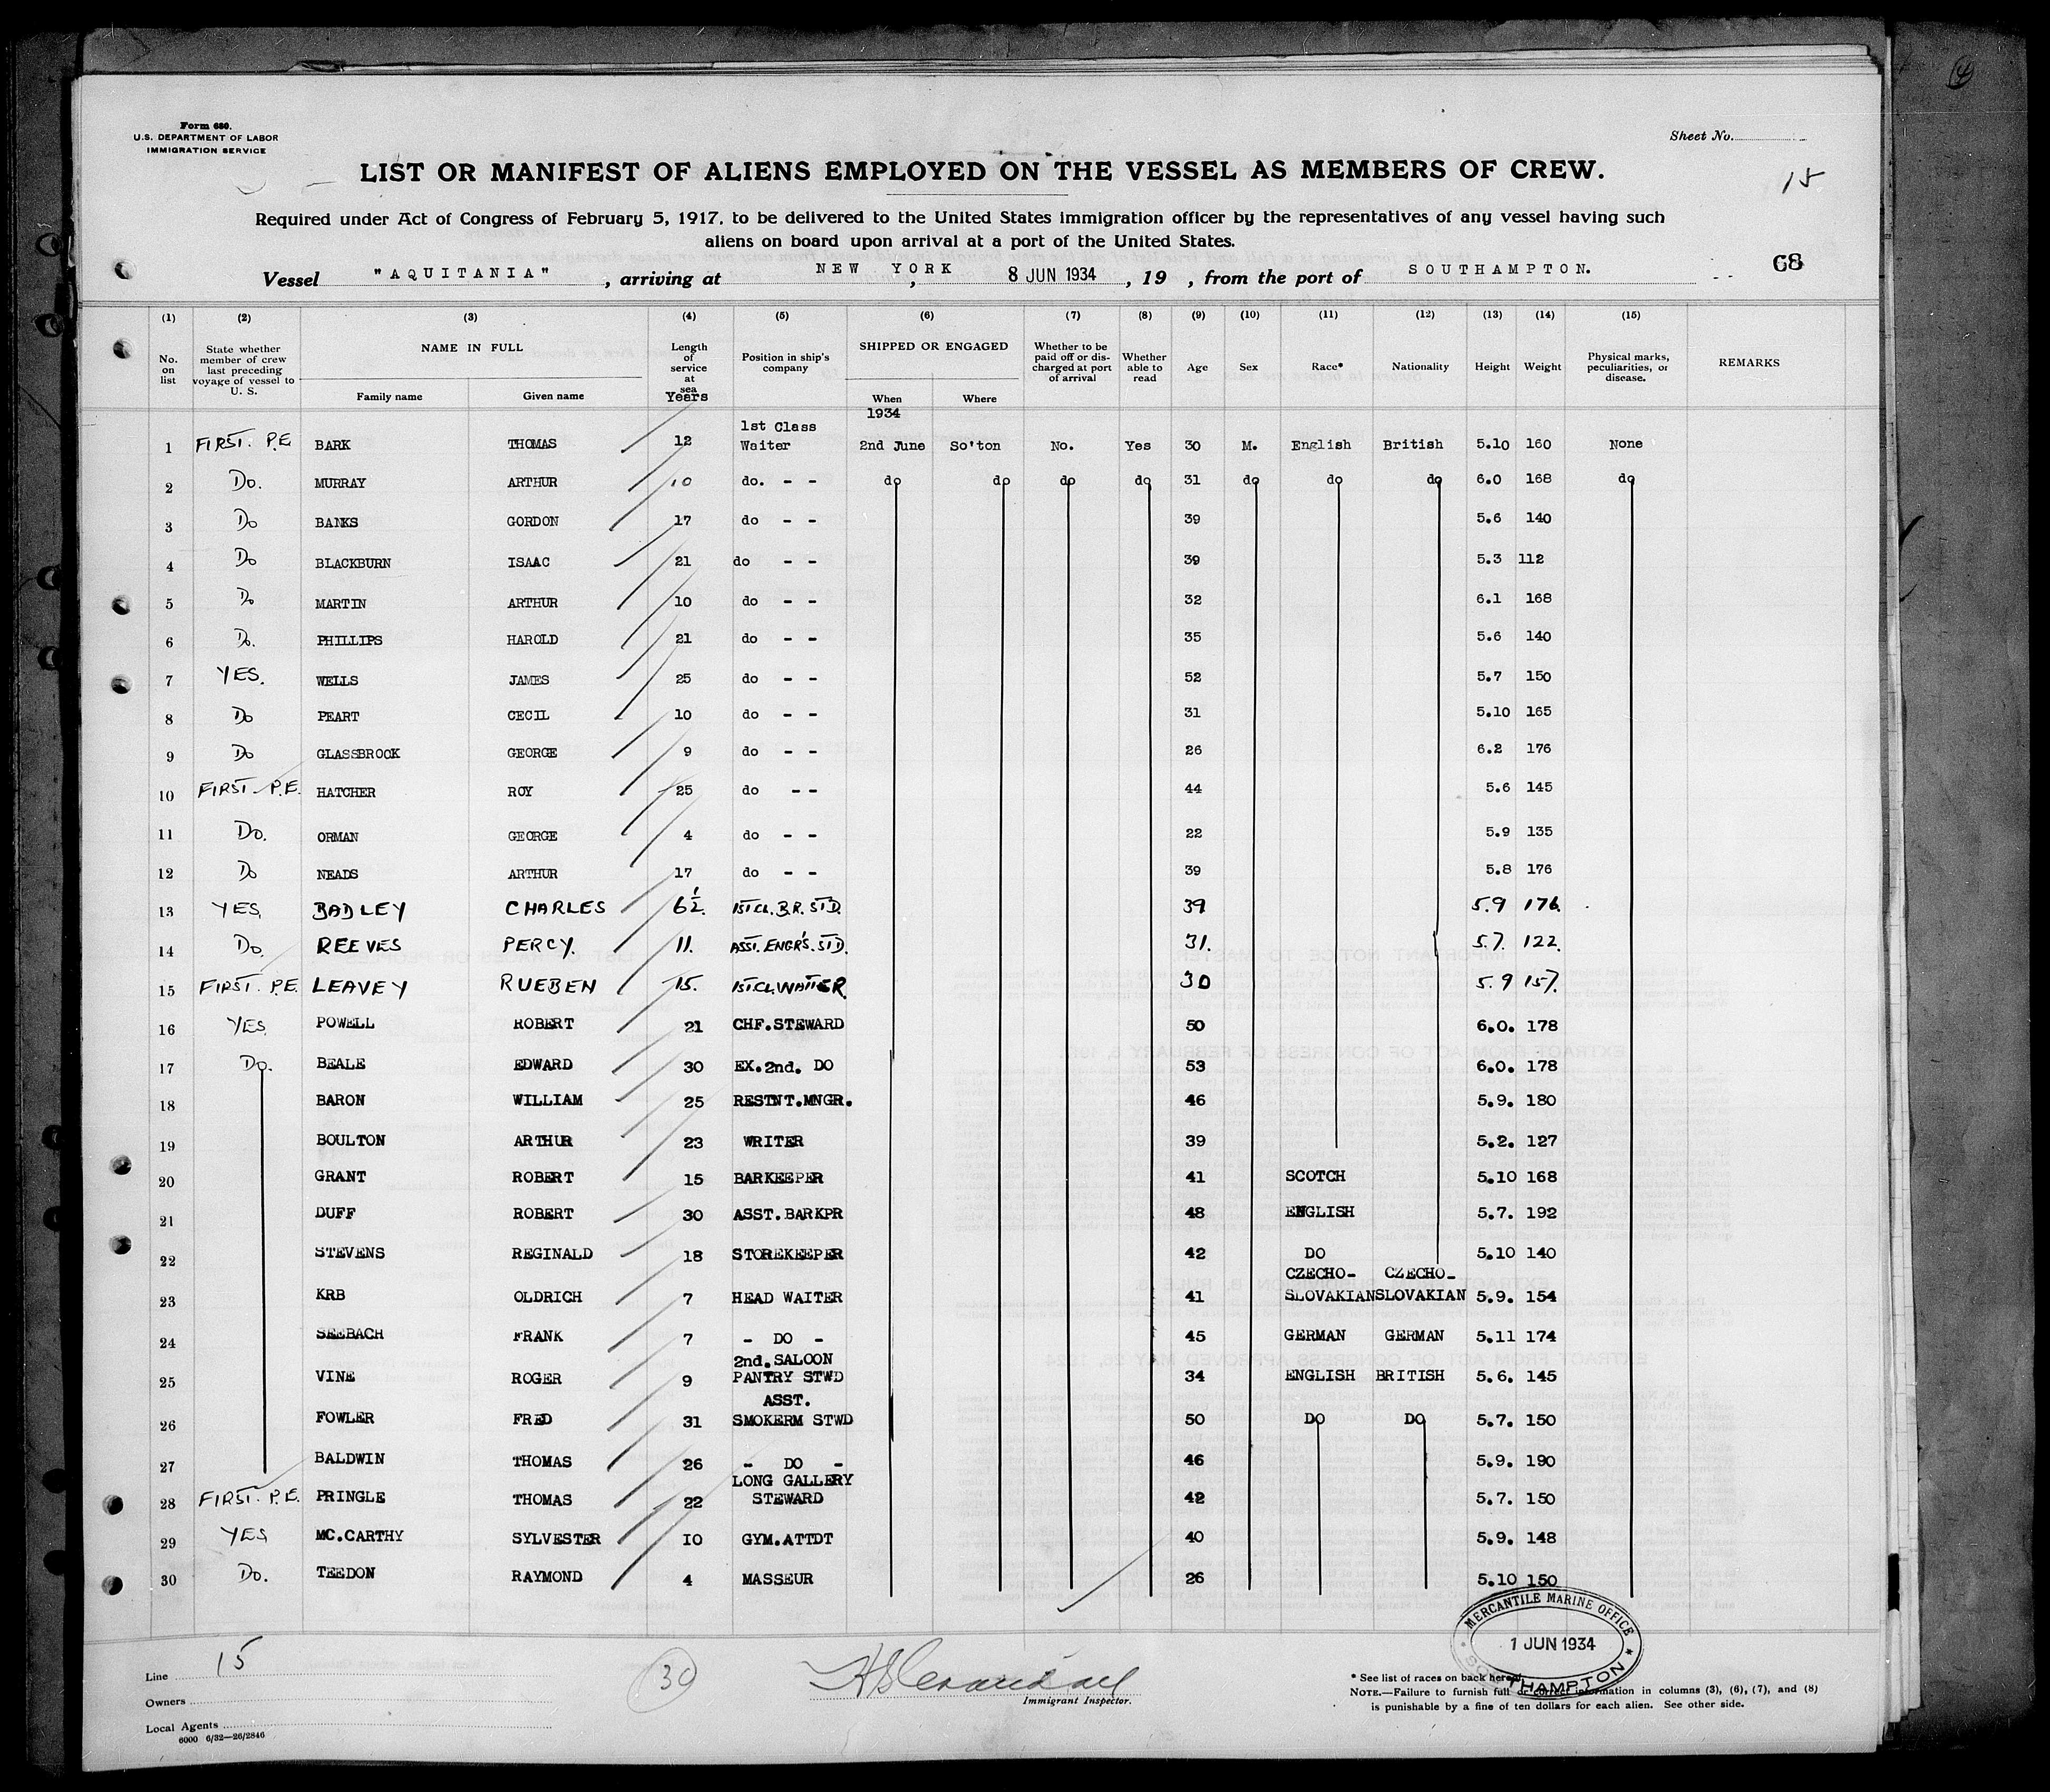 Form 680.
U.S. DEPARTMENT OF LABOR
IMMIGRATION SERVICE
Sheet No.
LIST OR MANIFEST OF ALIENS EMPLOYED ON THE VESSEL AS MEMBERS OF CREW.
15
Required under Act of Congress of February 5, 1917, to be delivered to the United States immigration officer by the representatives of any vessel having such
aliens on board upon arrival at a port of the United States.
Vessel "AQUITANIA", arriving at NEW YORK, 8 JUN 1934, 19 , from the port of SOUTHAMPTON. C8
(1) (2) (3) (4) (5) (6) (7) (8) (9) (10) (11) (12) (13) (14) (15)
No. on list State whether member of crew last preceding voyage of vessel to U. S. NAME IN FULL Family name Given name Length of service at sea Years Position in ship's company SHIPPED OR ENGAGED When Where Whether to be paid off or discharged at port of arrival Whether able to read Age Sex Race* Nationality Height Weight Physical marks, peculiarities, or disease. REMARKS
1934
1 FIRST. P.E BARK THOMAS 12 1st Class Waiter 2nd June So'ton No. Yes 30 M. English British 5.10 160 None
2 Do. MURRAY ARTHUR 10 do. - - do do do do 31 do do do 6.0 168 do
3 Do BANKS GORDON 17 do - - 39 5.6 140
4 Do BLACKBURN ISAAC 21 do - - 39 5.3 112
5 Do MARTIN ARTHUR 10 do - - 32 6.1 168
6 Do. PHILLIPS HAROLD 21 do - - 35 5.6 140
7 YES. WELLS JAMES 25 do - - 52 5.7 150
8 Do PEART CECIL 10 do - - 31 5.10 165
9 Do GLASSBROOK GEORGE 9 do - - 26 6.2 176
10 FIRST P.E. HATCHER ROY 25 do - - 44 5.6 145
11 Do. ORMAN GEORGE 4 do - - 22 5.9 135
12 Do NEADS ARTHUR 17 do - - 39 5.8 176
13 YES. BADLEY CHARLES 6½. 1ST CL. B.R. STD. 39 5.9 176.
14 Do. REEVES PERCY. 11. ASST. ENGR'S. STD. 31. 5.7. 122.
15 FIRST. P.E. LEAVEY RUEBEN 15. 1ST CL. WAITER. 30 5.9 157.
16 YES. POWELL ROBERT 21 CHF.STEWARD 50 6.0. 178
17 Do. BEALE EDWARD 30 EX.2nd. DO 53 6.0. 178
18 BARON WILLIAM 25 RESTNT.MNGR. 46 5.9. 180
19 BOULTON ARTHUR 23 WRITER 39 5.2. 127
20 GRANT ROBERT 15 BARKEEPER 41 SCOTCH 5.10 168
21 DUFF ROBERT 30 ASST.BARKPR 48 ENGLISH 5.7. 192
22 STEVENS REGINALD 18 STOREKEEPER 42 DO 5.10 140
23 KRB OLDRICH 7 HEAD WAITER 41 CZECHO-SLOVAKIAN CZECHO-SLOVAKIAN 5.9. 154
24 SEEBACH FRANK 7 - DO - 45 GERMAN GERMAN 5.11 174
25 VINE ROGER 9 2nd.SALOON PANTRY STWD 34 ENGLISH BRITISH 5.6. 145
26 FOWLER FRED 31 ASST. SMOKERM STWD 50 DO DO 5.7. 150
27 BALDWIN THOMAS 26 - DO - 46 5.9. 190
28 FIRST. P.E. PRINGLE THOMAS 22 LONG GALLERY STEWARD 42 5.7. 150
29 YES MC.CARTHY SYLVESTER 10 GYM.ATTDT 40 5.9. 148
30 Do. TEEDON RAYMOND 4 MASSEUR 26 5.10 150
MERCANTILE MARINE OFFICE
1 JUN 1934
SOUTHAMPTON
Line 15
30
Owners
Immigrant Inspector.
Local Agents
6000 6/32—26/2846
* See list of races on back hereof.
NOTE.—Failure to furnish full or correct information in columns (3), (6), (7), and (8)
is punishable by a fine of ten dollars for each alien. See other side.